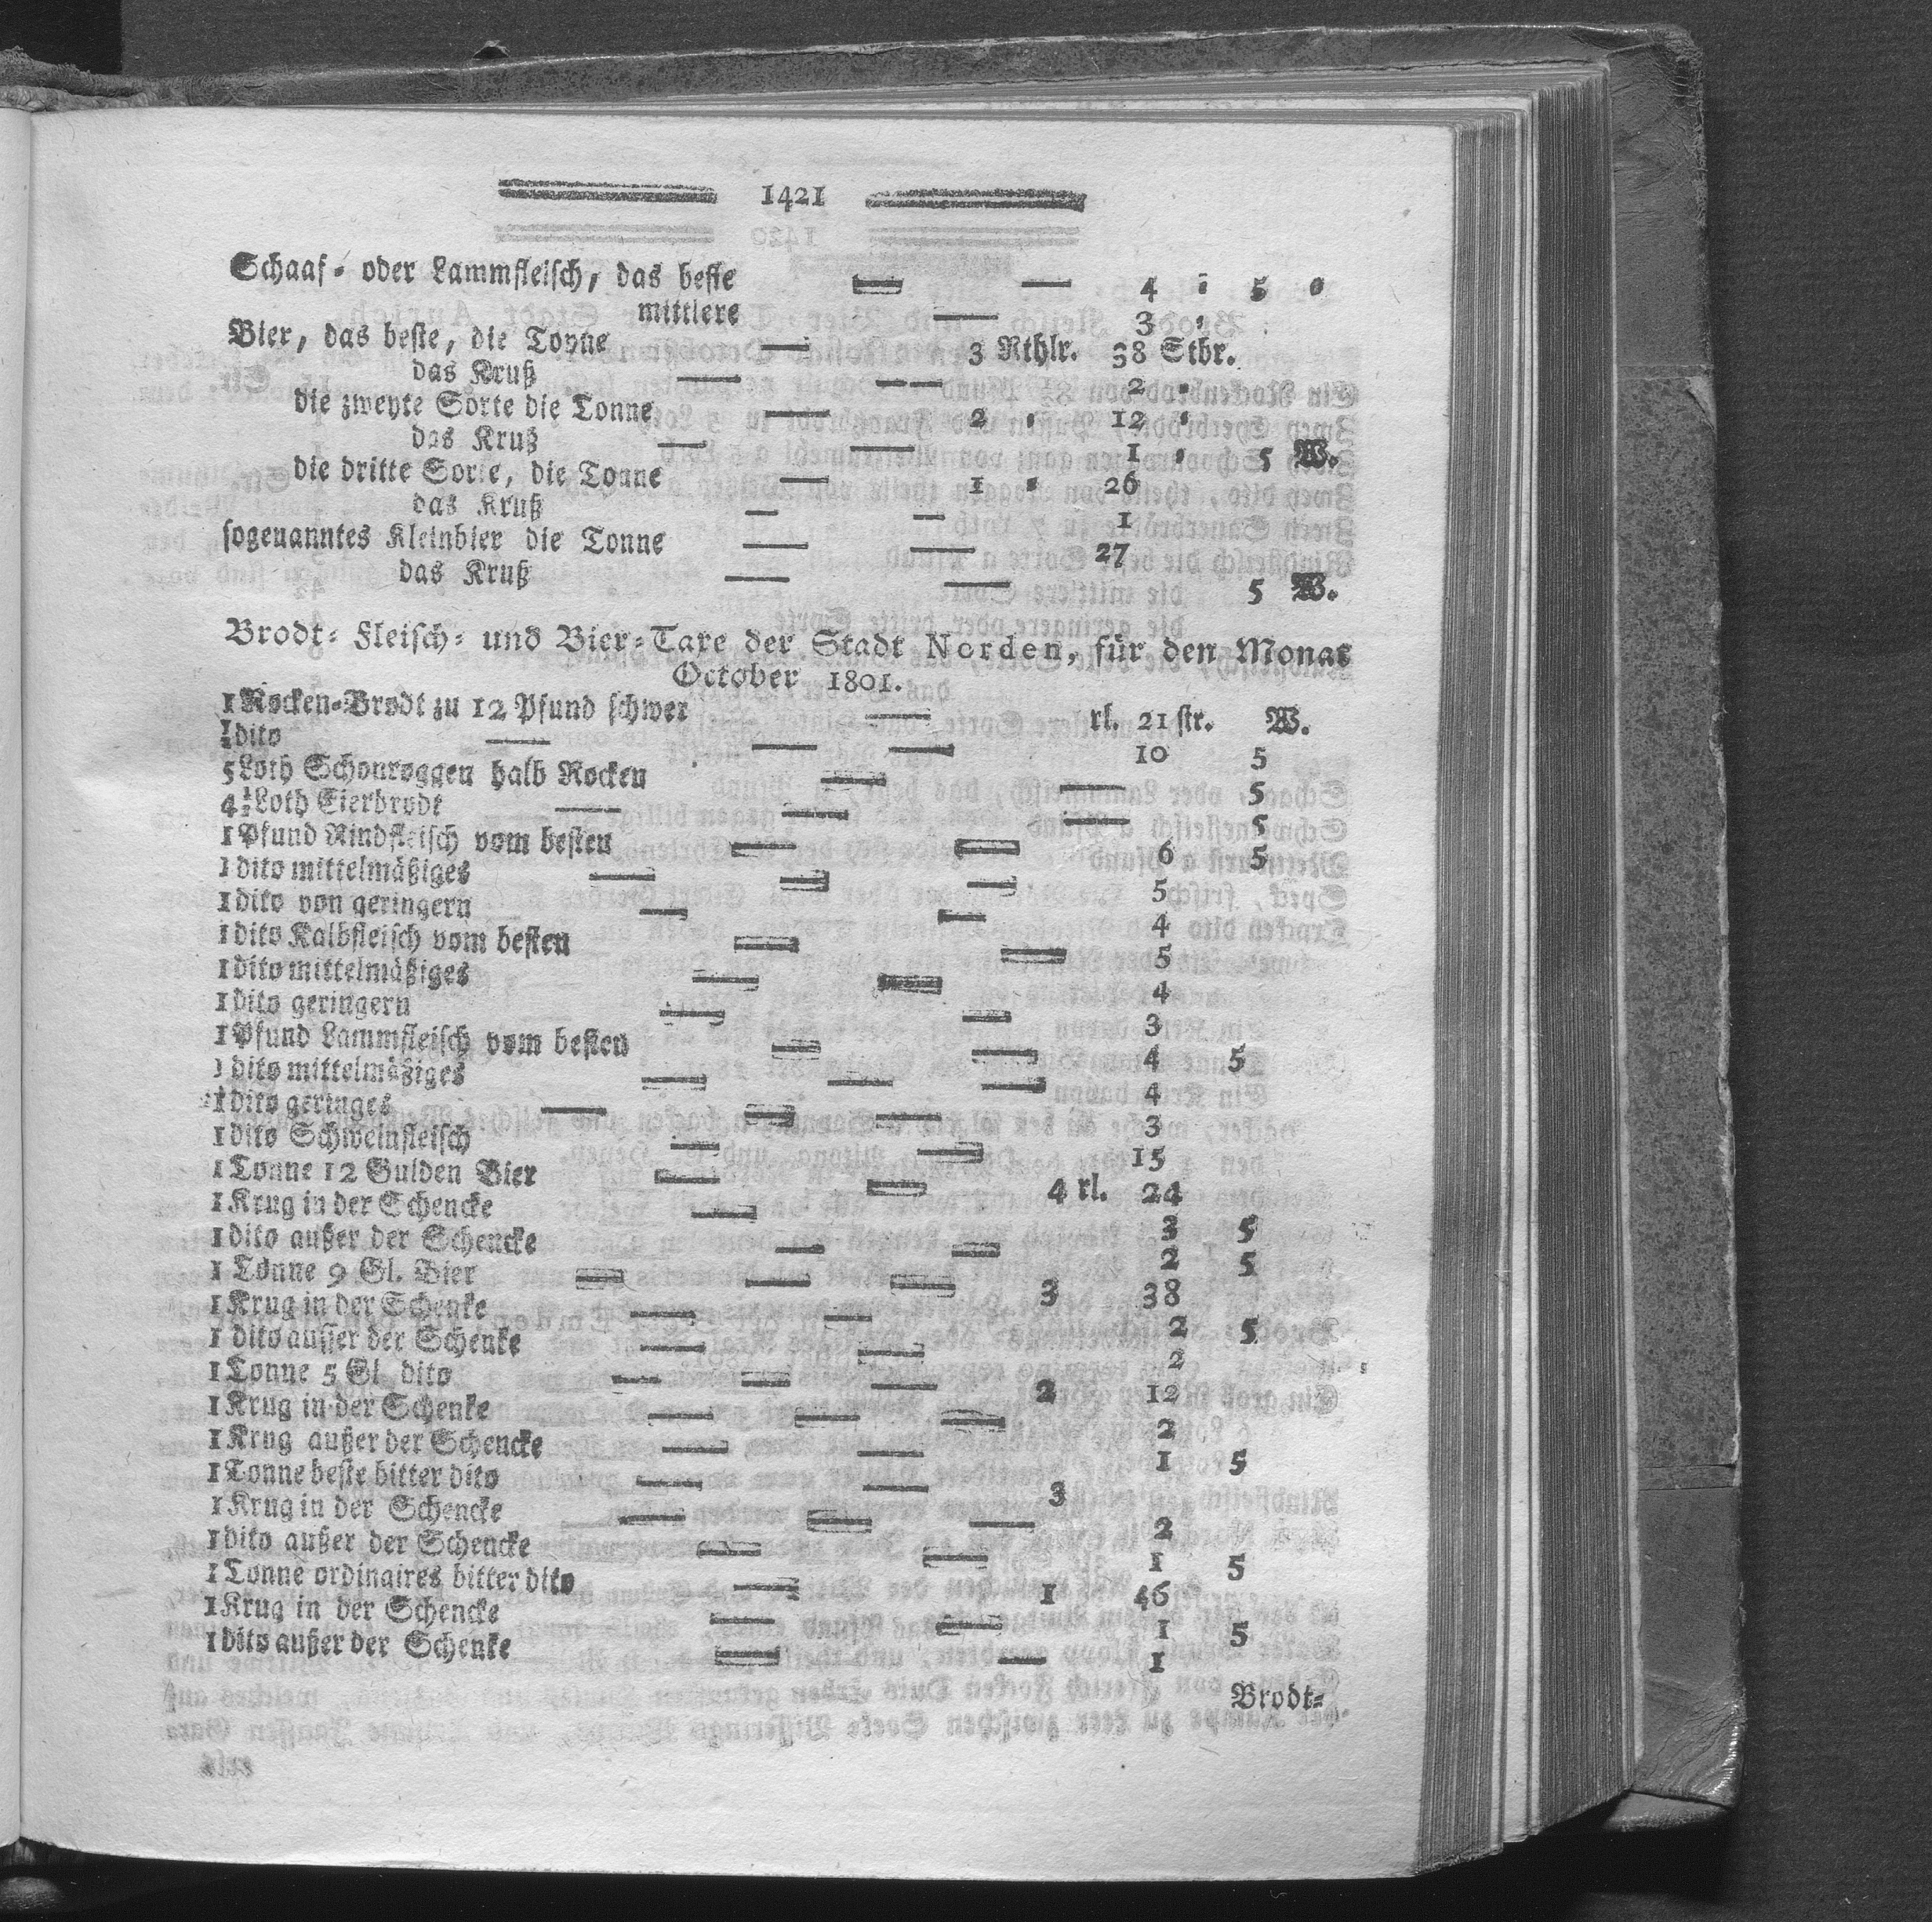 1421
Schaaf- oder Lammfleisch, das beste — — 4 5
mittlere — 3
Bier, das beste, die Tonne — 3 Rthlr. 38 Stbr.
das Kruß — — — 2
die zweyte Sorte die Tonne — 2 12
das Kruß — — 1 5 W.
die dritte Sorte, die Tonne — 1 26
das Kruß — — 1
sogenanntes Kleinbier die Tonne — — 27
das Kruß — — 5 W.
Brodt- Fleisch- und Bier-Taxe der Stadt Norden, für den Monat
October 1801.
1 Rocken-Brodt zu 12 Pfund schwer — rl. 21 str. W.
½ dito — — — 10 5
5 Loth Schonroggen halb Rocken — — 5
4½ Loth Eierbrodt — — — 5
1 Pfund Rindfleisch vom besten — — 6 5
1 dito mittelmäßiges — — — 5
1 dito von geringern — — 4
1 dito Kalbfleisch vom besten — — 5
1 dito mittelmäßiges — — 4
1 dito geringern — — 3
1 Pfund Lammfleisch vom besten — — 4 5
1 dito mittelmäßiges — — — 4
1 dito geringes — — — 3
1 dito Schweinfleisch — — 15
1 Tonne 12 Gulden Bier — — 4 rl. 24
1 Krug in der Schencke — 3 5
1 dito außer der Schencke — — 2 5
1 Tonne 9 Gl. Bier — — — 3 38
1 Krug in der Schenke — — 2 5
1 dito ausser der Schenke — — 2
1 Tonne 5 Gl. dito — — — 2 12
1 Krug in der Schenke — — — 2
1 Krug außer der Schencke — — 1 5
1 Tonne beste bitter dito — — 3
1 Krug in der Schencke — — — 2
1 dito außer der Schencke — — 1 5
1 Tonne ordinaires bitter dito — 1 46
1 Krug in der Schencke — — 1 5
1 dito außer der Schenke — — 1
Brodt-